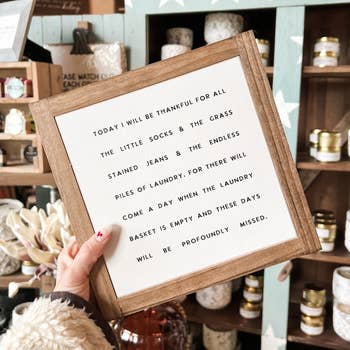 PLEASE WATCH OUR
EACH O
TODAY I WILL BE THANKFUL FOR ALL
THE LITTLE SOCKS & THE GRASS
STAINED JEANS & THE ENDLESS
PILES OF LAUNDRY. FOR THERE WILL
COME A DAY WHEN THE LAUNDRY
BASKET IS EMPTY AND THESE DAYS
WILL BE PROFOUNDLY MISSED.